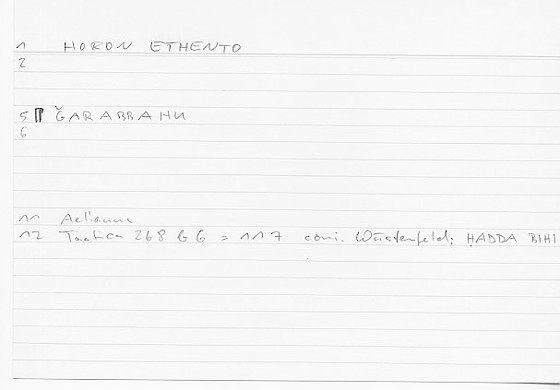 1 HORON ETHENTO
2
5 ĞARABBAHU
6
11 Aelianus
12 Tactica 268 b 6 = 117 coni. Wüstenfeld: HADDA BIHI